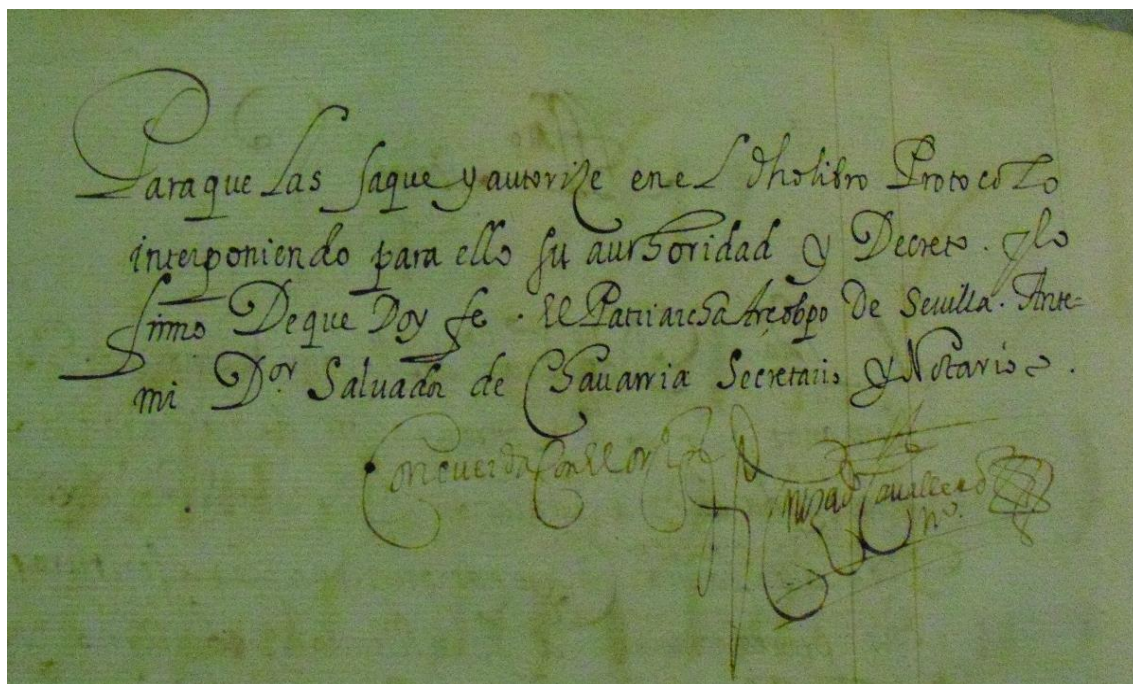 Para que las saque y autorize en el dho libro Protocolo
interponiendo para ello su authoridad y Decreto. y lo
firmo De que Doy fe. El Patriarcha Arcobpo De Seuilla. Ante
mi D.or Saluador de Chauarria Secretario y Notario.
Concuerda Con El
Cauallero
n.o